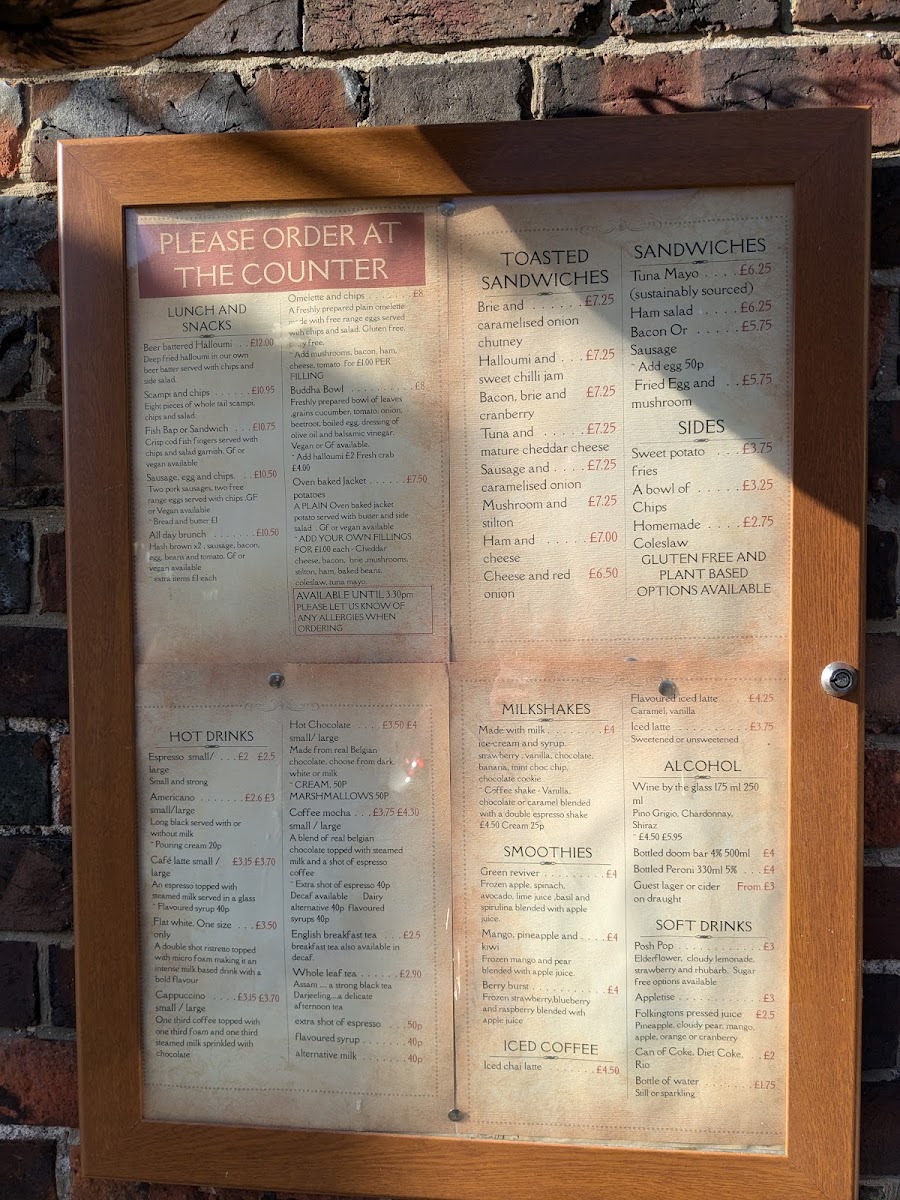 PLEASE ORDER AT
THE COUNTER
LUNCH AND
SNACKS
Beer battered Halloumi . . . £12.00
Deep fried halloumi in our own
beer batter served with chips and
side salad.
Scampi and chips . . . . . . £10.95
Eight pieces of whole tail scampi,
chips and salad.
Fish Bap or Sandwich . . . £10.75
Crisp cod fish fingers served with
chips and salad garnish. GF or
vegan available
Sausage, egg and chips. . . £10.50
Two pork sausages, two free
range eggs served with chips .GF
or Vegan available
* Bread and butter £1
All day brunch . . . . . . . £10.50
Hash brown x2 , sausage, bacon,
egg, beans and tomato. Gf or
vegan available
extra items £1 each
Omelette and chips . . . . . . . £8
A freshly prepared plain omelette
made with free range eggs served
with chips and salad. Gluten free,
free.
* Add mushrooms, bacon, ham,
cheese, tomato for £1.00 PER
FILLING
Buddha Bowl . . . . . . . . . . £8
Freshly prepared bowl of leaves
,grains cucumber, tomato, onion,
beetroot, boiled egg, dressing of
olive oil and balsamic vinegar.
Vegan or Gf available.
* Add halloumi £2 Fresh crab
£4.00
Oven baked Jacket . . . . . . £7.50
potatoes
A PLAIN Oven baked jacket
potato served with butter and side
salad . GF or vegan available
* ADD YOUR OWN FILLINGS
FOR £1.00 each - Cheddar
cheese, bacon, brie ,mushrooms,
stilton, ham, baked beans,
coleslaw, tuna mayo.
AVAILABLE UNTIL 3.30pm
PLEASE LET US KNOW OF
ANY ALLERGIES WHEN
ORDERING
TOASTED
SANDWICHES
Brie and . . . . . . . £7.25
caramelised onion
chutney
Halloumi and . . . . £7.25
sweet chilli jam
Bacon, brie and £7.25
cranberry
Tuna and . . . . . . £7.25
mature cheddar cheese
Sausage and . . . . . £7.25
caramelised onion
Mushroom and £7.25
stilton
Ham and . . . . . . . £7.00
cheese
Cheese and red £6.50
onion
SANDWICHES
Tuna Mayo . . . . £6.25
(sustainably sourced)
Ham salad . . . . . £6.25
Bacon Or . . . . . £5.75
Sausage
* Add egg 50p
Fried Egg and . . £5.75
mushroom
SIDES
Sweet potato . . . £3.75
fries
A bowl of . . . . . £3.25
Chips
Homemade . . . . £2.75
Coleslaw
GLUTEN FREE AND
PLANT BASED
OPTIONS AVAILABLE
HOT DRINKS
Espresso small/ . . . £2 £2.5
large
Small and strong
Americano . . . . . . . £2.6 £3
small/large
Long black served with or
without milk
* Pouring cream 20p
Café latte small / £3.15 £3.70
large
An espresso topped with
steamed milk served in a glass
* Flavoured syrup 40p
Flat white. One size . . . £3.50
only
A double shot ristretto topped
with micro foam making it an
intense milk based drink with a
bold flavour
Cappuccino . . . . £3.15 £3.70
small / large
One third coffee topped with
one third foam and one third
steamed milk sprinkled with
chocolate
Hot Chocolate . . . . £3.50 £4
small/ large
Made from real Belgian
chocolate, choose from dark,
white or milk
* CREAM, 50P
MARSHMALLOWS 50P
Coffee mocha . . . £3.75 £4.30
small / large
A blend of real belgian
chocolate topped with steamed
milk and a shot of espresso
coffee
* Extra shot of espresso 40p
Decaf available Dairy
alternative 40p flavoured
syrups 40p
English breakfast tea . . . . £2.5
breakfast tea also available in
decaf.
Whole leaf tea . . . . . . . £2.90
Assam .... a strong black tea
Darjeeling....a delicate
afternoon tea
extra shot of espresso . . . . 50p
flavoured syrup . . . . . . . 40p
alternative milk . . . . . . . 40p
MILKSHAKES
Made with milk, . . . . . . . . £4
ice-cream and syrup.
strawberry , vanilla, chocolate,
banana, mint choc chip,
chocolate cookie
* Coffee shake - Vanilla,
chocolate or caramel blended
with a double espresso shake
£4.50 Cream 25p
SMOOTHIES
Green reviver . . . . . . . . . £4
Frozen apple, spinach,
avocado, lime juice ,basil and
spirulina blended with apple
juice.
Mango, pineapple and . . . . £4
kiwi
Frozen mango and pear
blended with apple juice.
Berry burst . . . . . . . . . . £4
Frozen strawberry,blueberry
and raspberry blended with
apple juice
ICED COFFEE
Iced chai latte . . . . . . . £4.50
Flavoured iced latte £4.25
Caramel, vanilla
Iced latte . . . . . . . . . £3.75
Sweetened or unsweetened
ALCOHOL
Wine by the glass 175 ml 250
ml
Pino Grigio, Chardonnay,
Shiraz
* £4.50 £5.95
Bottled doom bar 4% 500ml £4
Bottled Peroni 330ml 5% . . . £4
Guest lager or cider From £3
on draught
SOFT DRINKS
Posh Pop . . . . . . . . . . . £3
Elderflower, cloudy lemonade,
strawberry and rhubarb. Sugar
free options available
Appletise . . . . . . . . . . . £3
Folkingtons pressed juice £2.5
Pineapple, cloudy pear, mango,
apple, orange or cranberry
Can of Coke, Diet Coke, . . £2
Rio
Bottle of water . . . . . . . £1.75
Still or sparkling